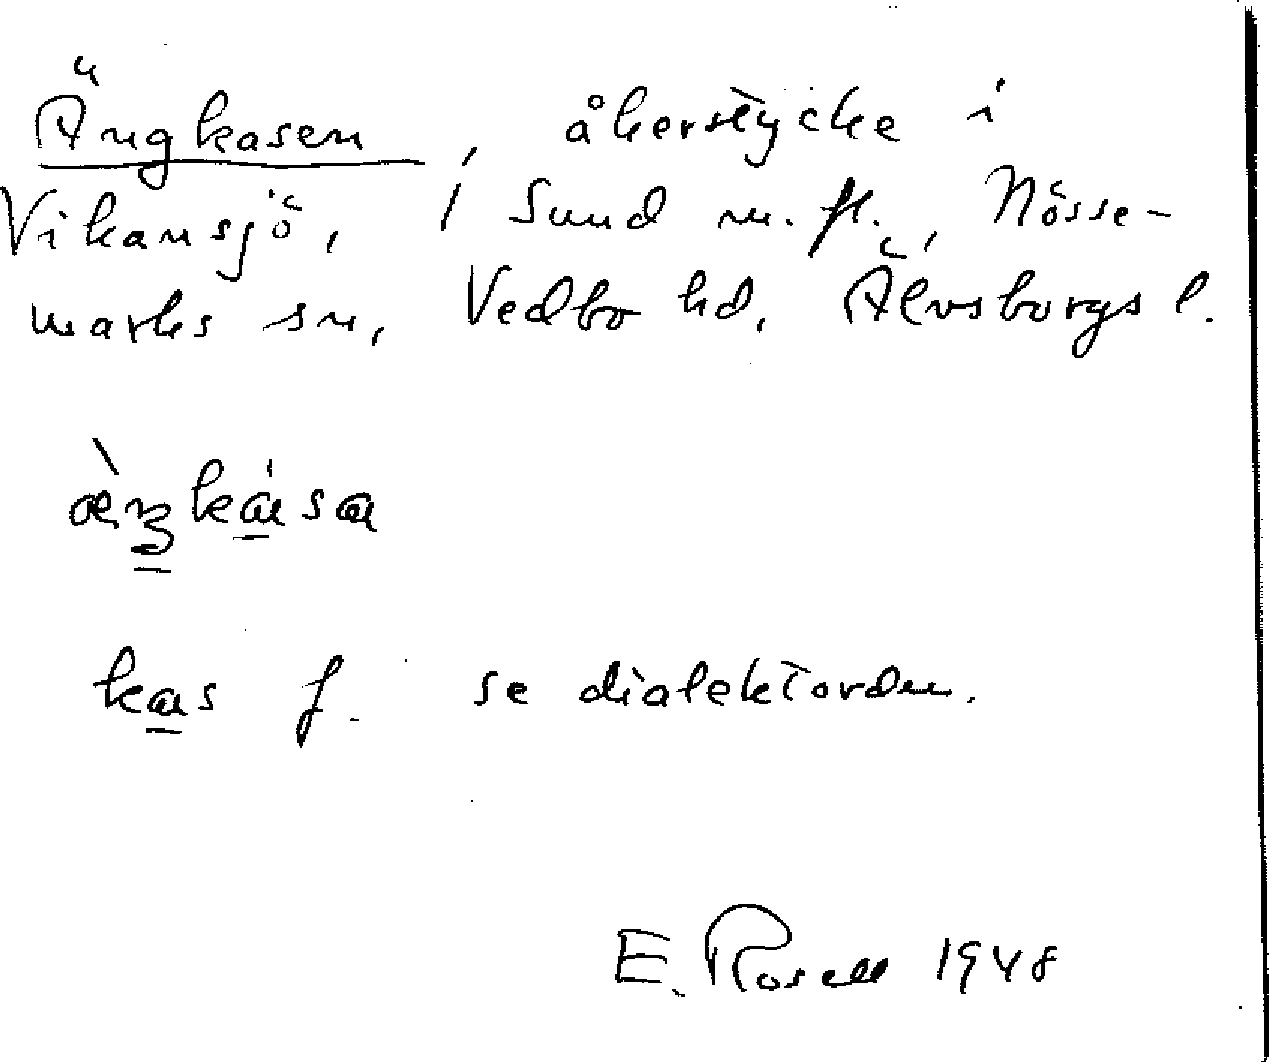 Ängkasen, åkerstycke i
Vikansjö, 1 Sund m.fl., Nösse-
marks sn, Vedbo hd, Älvsborgs l.
kas f. se dialektorden.
E. Rosell 1948